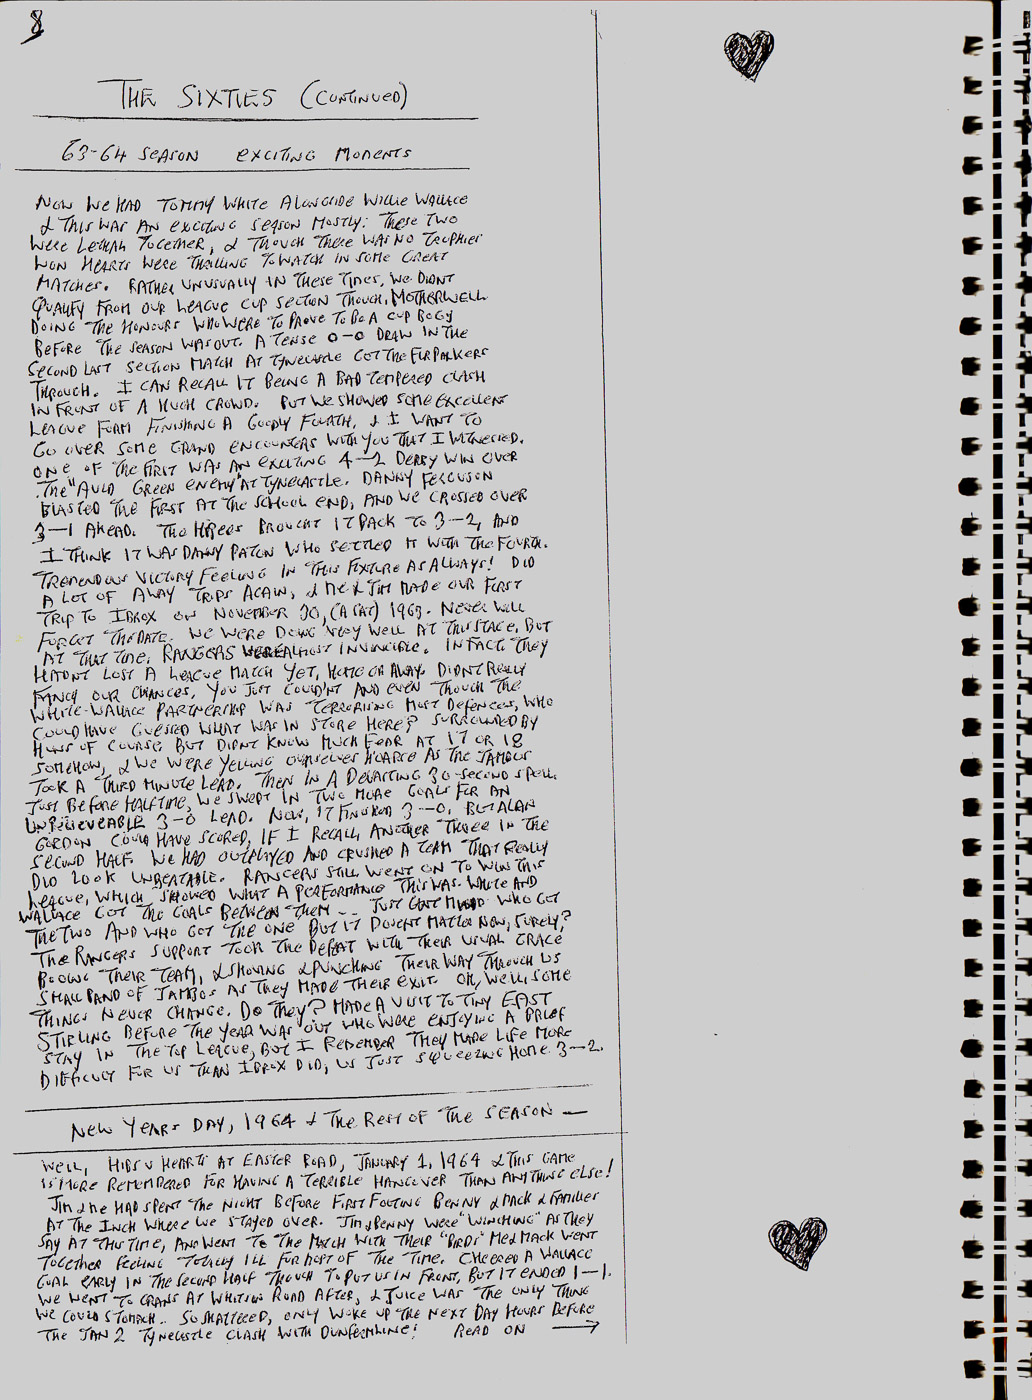 8
THE SIXTIES (CONTINUED)
63-64 SEASON EXCITING MOMENTS
NOW WE HAD TOMMY WHITE ALONGSIDE WILLIE WALLACE
& THIS WAS AN EXCITING SEASON MOSTLY: THESE TWO
WERE LETHAL TOGETHER, & THOUGH THERE WAS NO TROPHIES
WON HEARTS WERE THRILLING TO WATCH IN SOME GREAT
MATCHES. RATHER UNUSUALLY IN THESE TIMES, WE DIDNT
QUALIFY FROM OUR LEAGUE CUP SECTION THOUGH, MOTHERWELL
DOING THE HONOURS WHO WERE TO PROVE TO BE A CUP BOGY
BEFORE THE SEASON WAS OUT. A TENSE 0-0 DRAW IN THE
SECOND LAST SECTION MATCH AT TYNECASTLE GOT THE FIRPARKERS
THROUGH. I CAN RECALL IT BEING A BAD TEMPERED CLASH
IN FRONT OF A HUGH CROWD. BUT WE SHOWED SOME EXCELLENT
LEAGUE FORM FINISHING A GOODLY FOURTH, & I WANT TO
GO OVER SOME GRAND ENCOUNTERS WITH YOU THAT I WITNESSED.
ONE OF THE FIRST WAS AN EXCITING 4-2 DERBY WIN OVER
THE "AULD GREEN ENEMY" AT TYNECASTLE. DANNY FERGUSON
BLASTED THE FIRST AT THE SCHOOL END, AND WE CROSSED OVER
3-1 AHEAD. THE HIBEES BROUGHT IT BACK TO 3-2, AND
I THINK IT WAS DANNY PATON WHO SETTLED IT WITH THE FOURTH.
TREMENDOUS VICTORY FEELING IN THIS FIXTURE AS ALWAYS! DID
A LOT OF AWAY TRIPS AGAIN, & ME & JIM MADE OUR FIRST
TRIP TO IBROX ON NOVEMBER 30, (A SAT) 1963. NEVER WILL
FORGET THE DATE. WE WERE DOING VERY WELL AT THIS STAGE, BUT
AT THAT TIME, RANGERS WERE ALMOST INVINCIBLE. IN FACT THEY
HADNT LOST A LEAGUE MATCH YET, HOME OR AWAY. DIDNT REALLY
FANCY OUR CHANCES, YOU JUST COULDN'T AND EVEN THOUGH THE
WHITE-WALLACE PARTNERSHIP WAS TERRORISING MOST DEFENCES, WHO
COULD HAVE GUESSED WHAT WAS IN STORE HERE? SURROUNDED BY
HUNS OF COURSE BUT DIDNT KNOW MUCH FEAR AT 17 OR 18
SOMEHOW, & WE WERE YELLING OURSELVES HOARSE AS THE JAMBOS
TOOK A THIRD MINUTE LEAD. THEN IN A DEVASTING 30-SECOND SPELL
JUST BEFORE HALFTIME, WE SWEPT IN TWO MORE GOALS FOR AN
UNBELIEVEABLE 3-0 LEAD. NOW, IT FINISHED 3-0, BUT ALAN
GORDON COULD HAVE SCORED, IF I RECALL, ANOTHER THREE IN THE
SECOND HALF. WE HAD OUTPLAYED AND CRUSHED A TEAM THAT REALLY
DID LOOK UNBEATABLE. RANGERS STILL WENT ON TO WIN THIS
LEAGUE, WHICH SHOWED WHAT A PERFORMANCE THIS WAS. WHITE AND
WALLACE GOT THE GOALS BETWEEN THEM -- JUST CANT MIND WHO GOT
THE TWO AND WHO GOT THE ONE BUT IT DOESNT MATTER NOW, SURELY?
THE RANGERS SUPPORT TOOK THE DEFEAT WITH THEIR USUAL GRACE
BOOING THEIR TEAM, & SHOVING & PUNCHING THEIR WAY THROUGH US
SMALL BAND OF JAMBOS AS THEY MADE THEIR EXIT. OH, WELL, SOME
THINGS NEVER CHANGE. DO THEY? MADE A VISIT TO TINY EAST
STIRLING BEFORE THE YEAR WAS OUT WHO WERE ENJOYING A BRIEF
STAY IN THE TOP LEAGUE, BUT I REMEMBER THEY MADE LIFE MORE
DIFFICULT FOR US THAN IBROX DID, US JUST SQUEEZING HOME 3-2.
NEW YEARS DAY, 1964 & THE REST OF THE SEASON —
WELL, HIBS V HEARTS AT EASTER ROAD, JANUARY 1, 1964 & THIS GAME
IS MORE REMEMBERED FOR HAVING A TERRIBLE HANGOVER THAN ANYTHING ELSE!
JIM & ME HAD SPENT THE NIGHT BEFORE FIRST FOOTING BENNY & MACK & FAMILIES
AT THE INCH WHERE WE STAYED OVER. JIM & BENNY WERE "WINCHING" AS THEY
SAY AT THIS TIME, AND WENT TO THE MATCH WITH THEIR "BIRDS" ME & MACK WENT
TOGETHER FEELING TOTALLY ILL FOR MOST OF THE TIME. CHEERED A WALLACE
GOAL EARLY IN THE SECOND HALF THOUGH TO PUT US IN FRONT, BUT IT ENDED 1-1.
WE WENT TO GRANS AT WHITSON ROAD AFTER, & JUICE WAS THE ONLY THING
WE COULD STOMACH.. SO SHATTERED, ONLY WOKE UP THE NEXT DAY HOURS BEFORE
THE JAN 2 TYNECASTLE CLASH WITH DUNFERMLINE! READ ON →